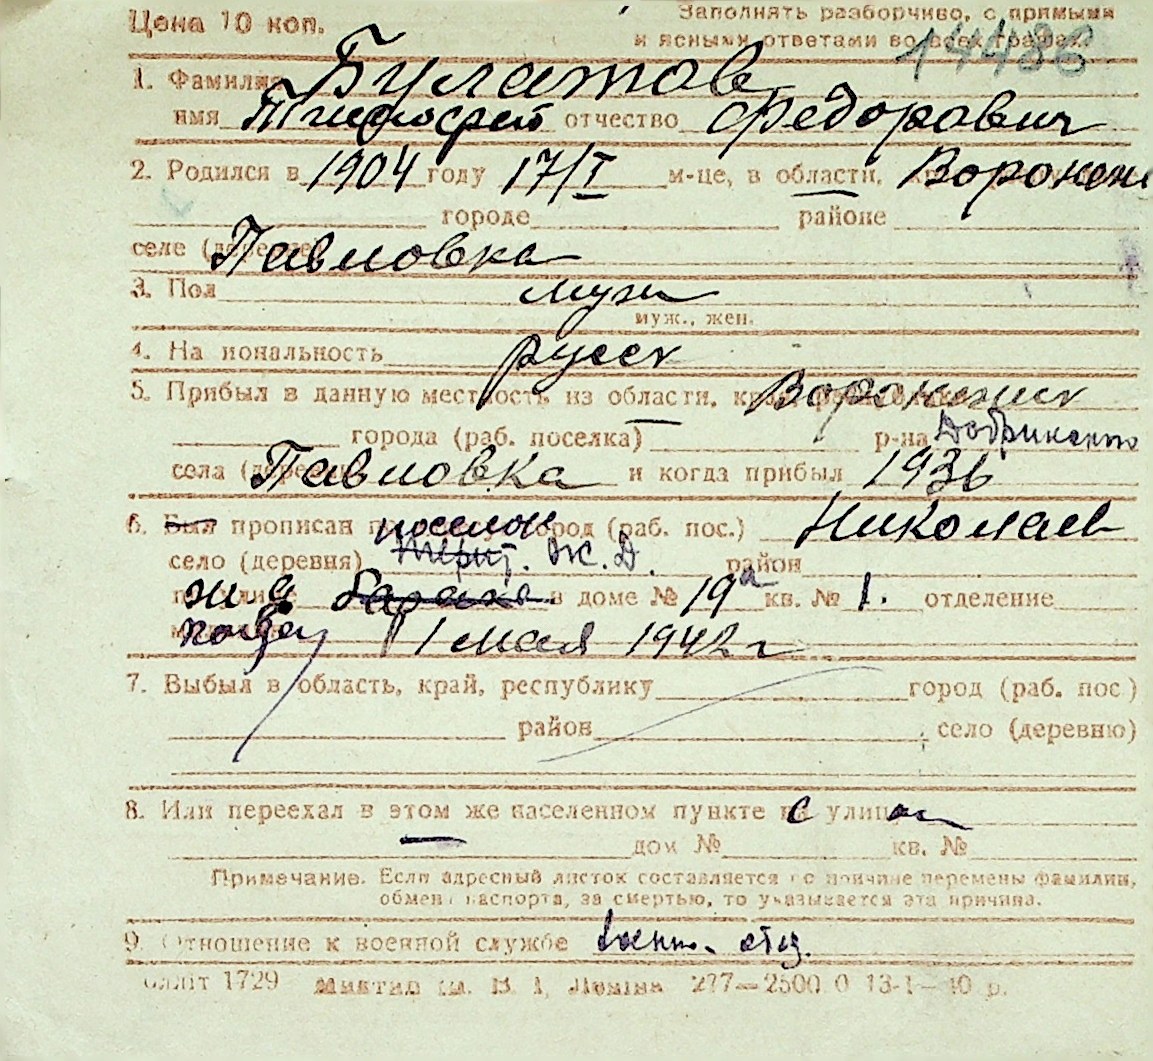 Цена 10 коп.
Заполнять разборчиво, с прямыми
и ясными ответами во всех графах.
14486
1. Фамилия Булатов
имя Тимофей отчество Федорович
2. Родился в 1904 году 17/I м-це, в области, Воронеж
городе районе
селе (деревне) Павловка
3. Пол муж
муж., жен.
4. Национальность русск
5. Прибыл в данную местность из области, края, Воронежск
города (раб. поселка) р-на Добринского
села (деревни) Павловка и когда прибыл 1936
6. Был прописан поселок город (раб. пос.) Николаев
село (деревня) Террит. Ж.Д. район
ж.д. барака в доме № 19а кв. № 1. отделение
1 мая 1942 г
7. Выбыл в область, край, республику город (раб. пос.)
район село (деревню)
8. Или переехал в этом же населенном пункте с улицы
дом № кв. №
Примечание. Если адресный листок составляется по причине перемены фамилии,
обмена паспорта, за смертью, то указывается эта причина.
9. Отношение к военной службе
1729 277—2500 0 13-1—40 р.